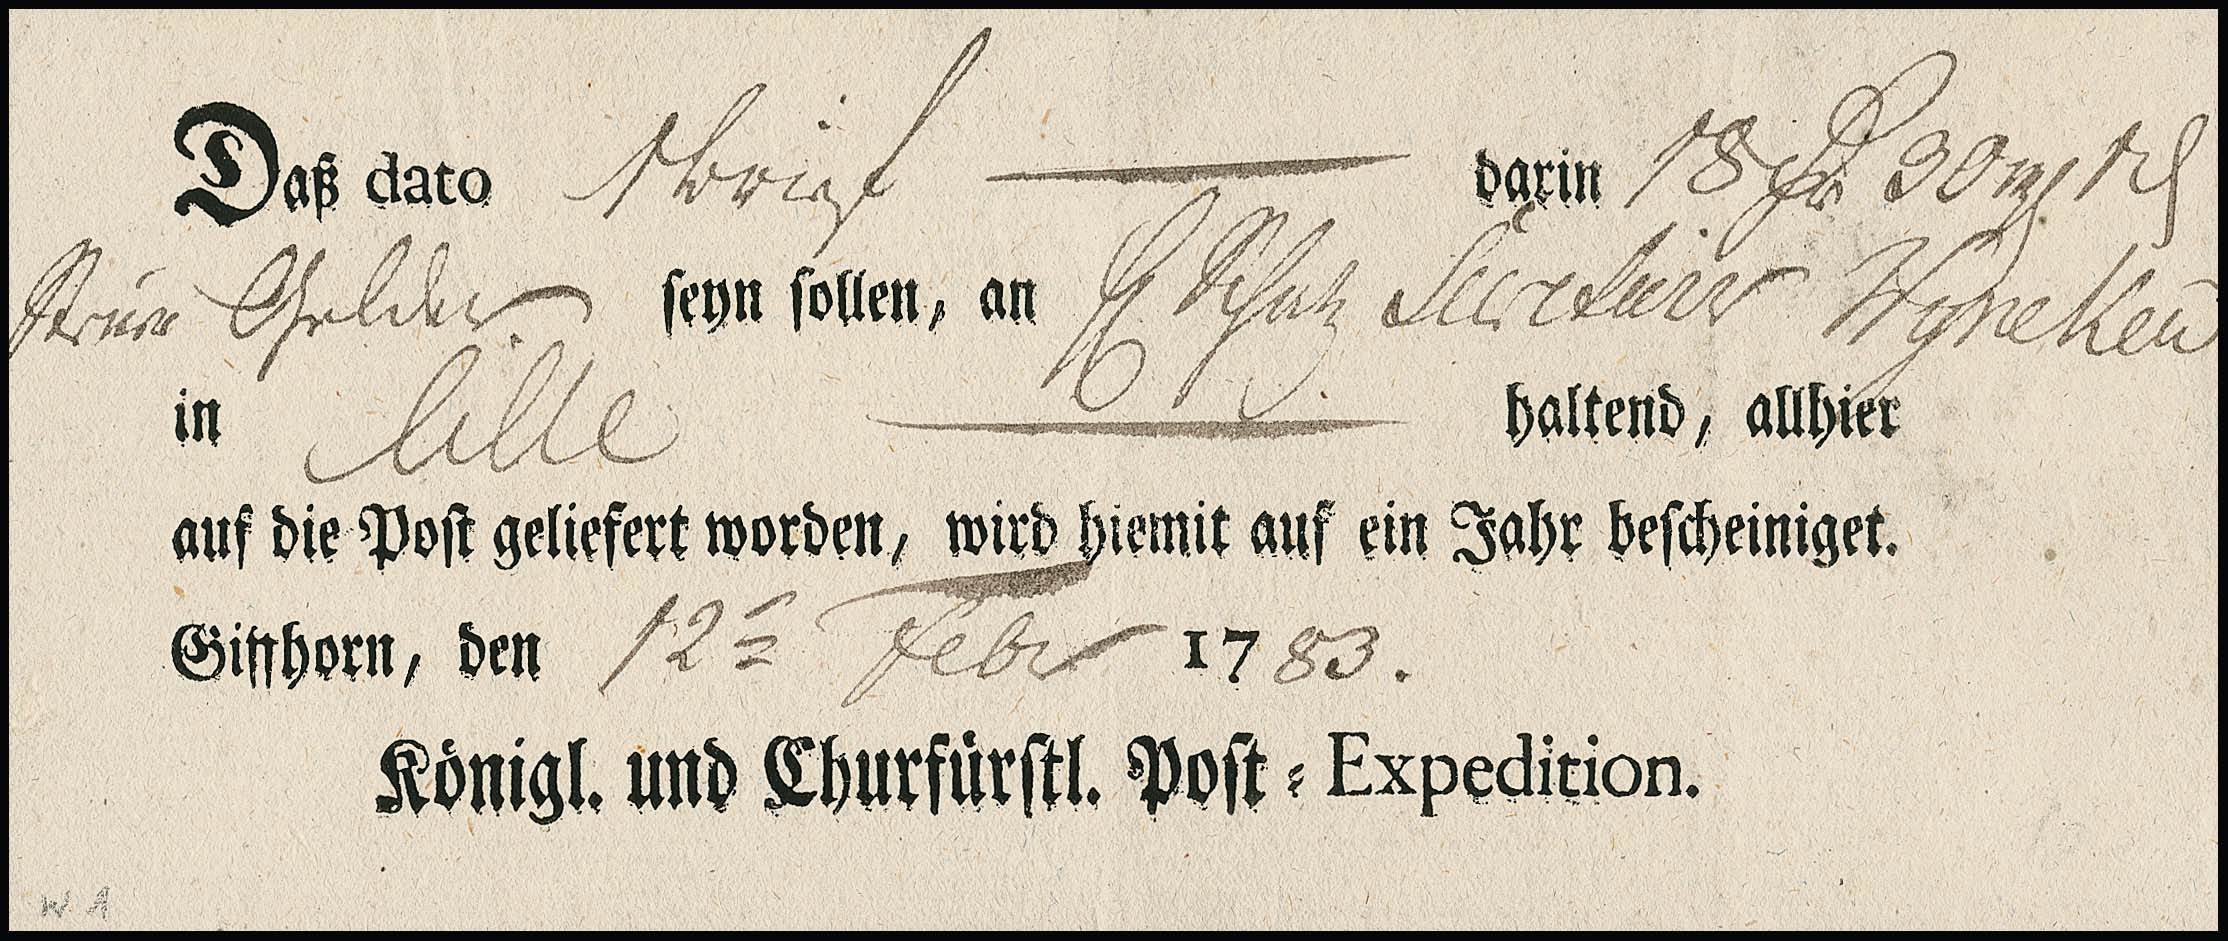 Daß dato 1 brief darin 18 30 mg 1 ₰
Gelder seyn sollen, an H Schatz Secretair Wyneken
in Celle haltend, allhier
auf die Post geliefert worden, wird hiemit auf ein Jahr bescheiniget.
Giffhorn, den 12 Febr 1783.
Königl. und Churfürstl. Post-Expedition.